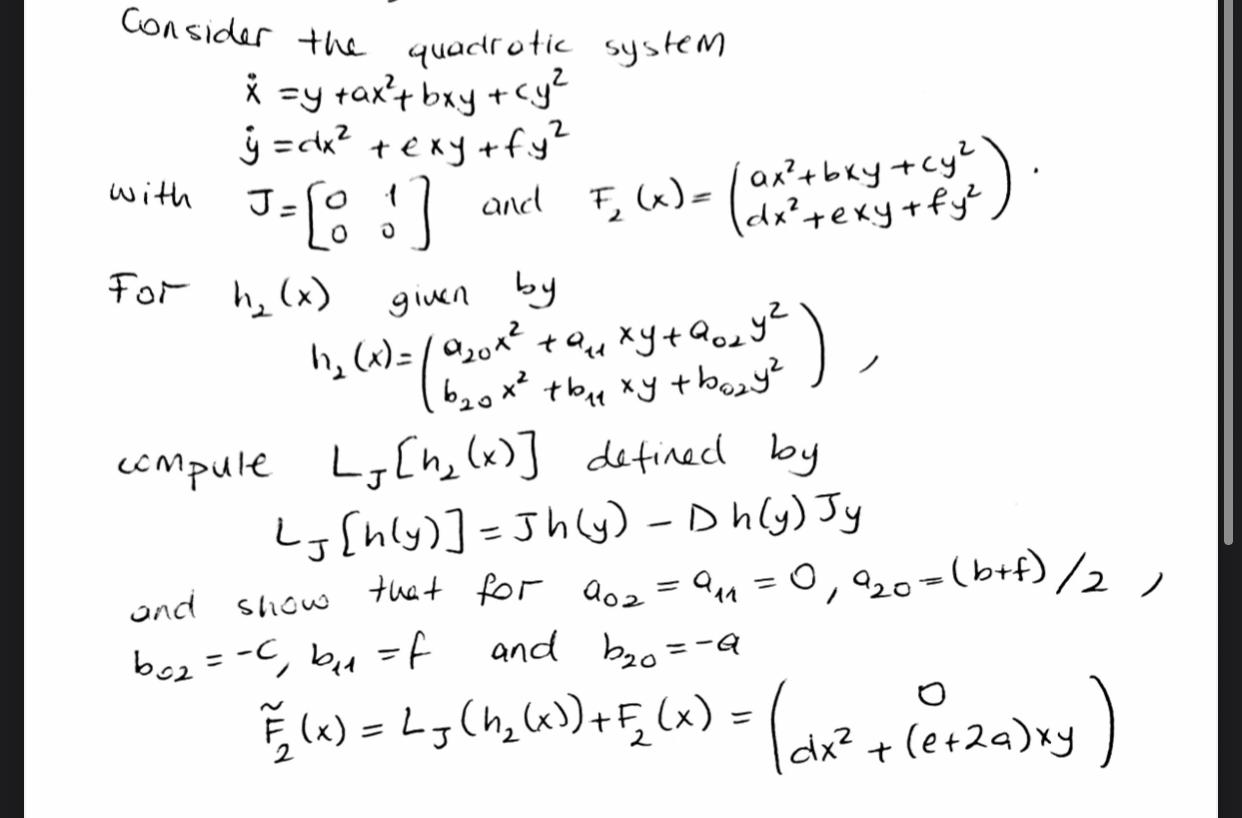 Consider the quadratic system
ẋ = y + ax² + bxy + cy²
ẏ = dx² + exy + fy²
with J = [0 1; 0 0] and F₂(x) = (ax² + bxy + cy²; dx² + exy + fy²).
For h₂(x) given by
h₂(x) = (a₂₀x² + a₁₁xy + a₀₂y²; b₂₀x² + b₁₁xy + b₀₂y²),
compute L_J[h₂(x)] defined by
L_J[h(y)] = Jh(y) − Dh(y)Jy
and show that for a₀₂ = a₁₁ = 0, a₂₀ = (b+f)/2,
b₀₂ = −c, b₁₁ = f and b₂₀ = −a
F̃₂(x) = L_J(h₂(x)) + F₂(x) = (0; dx² + (e+2a)xy)